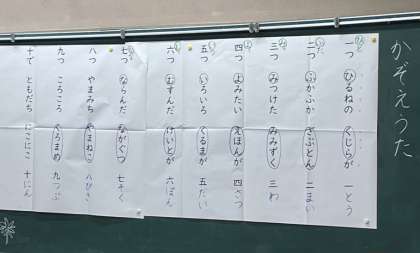 かぞえうた
一つ ひるねの くじらが 一とう
二つ ふかふか ざぶとん 二まい
三つ みつけた みみずく 三わ
四つ よみたい えほんが 四さつ
五つ いろいろ くるまが 五だい
六つ むすんだ けいとが 六ぽん
七つ ならんだ ながぐつ 七そく
八つ やまみち やまねこ 八ひき
九つ ころころ くろまめ 九つぶ
十で ともだち にこにこ 十にん